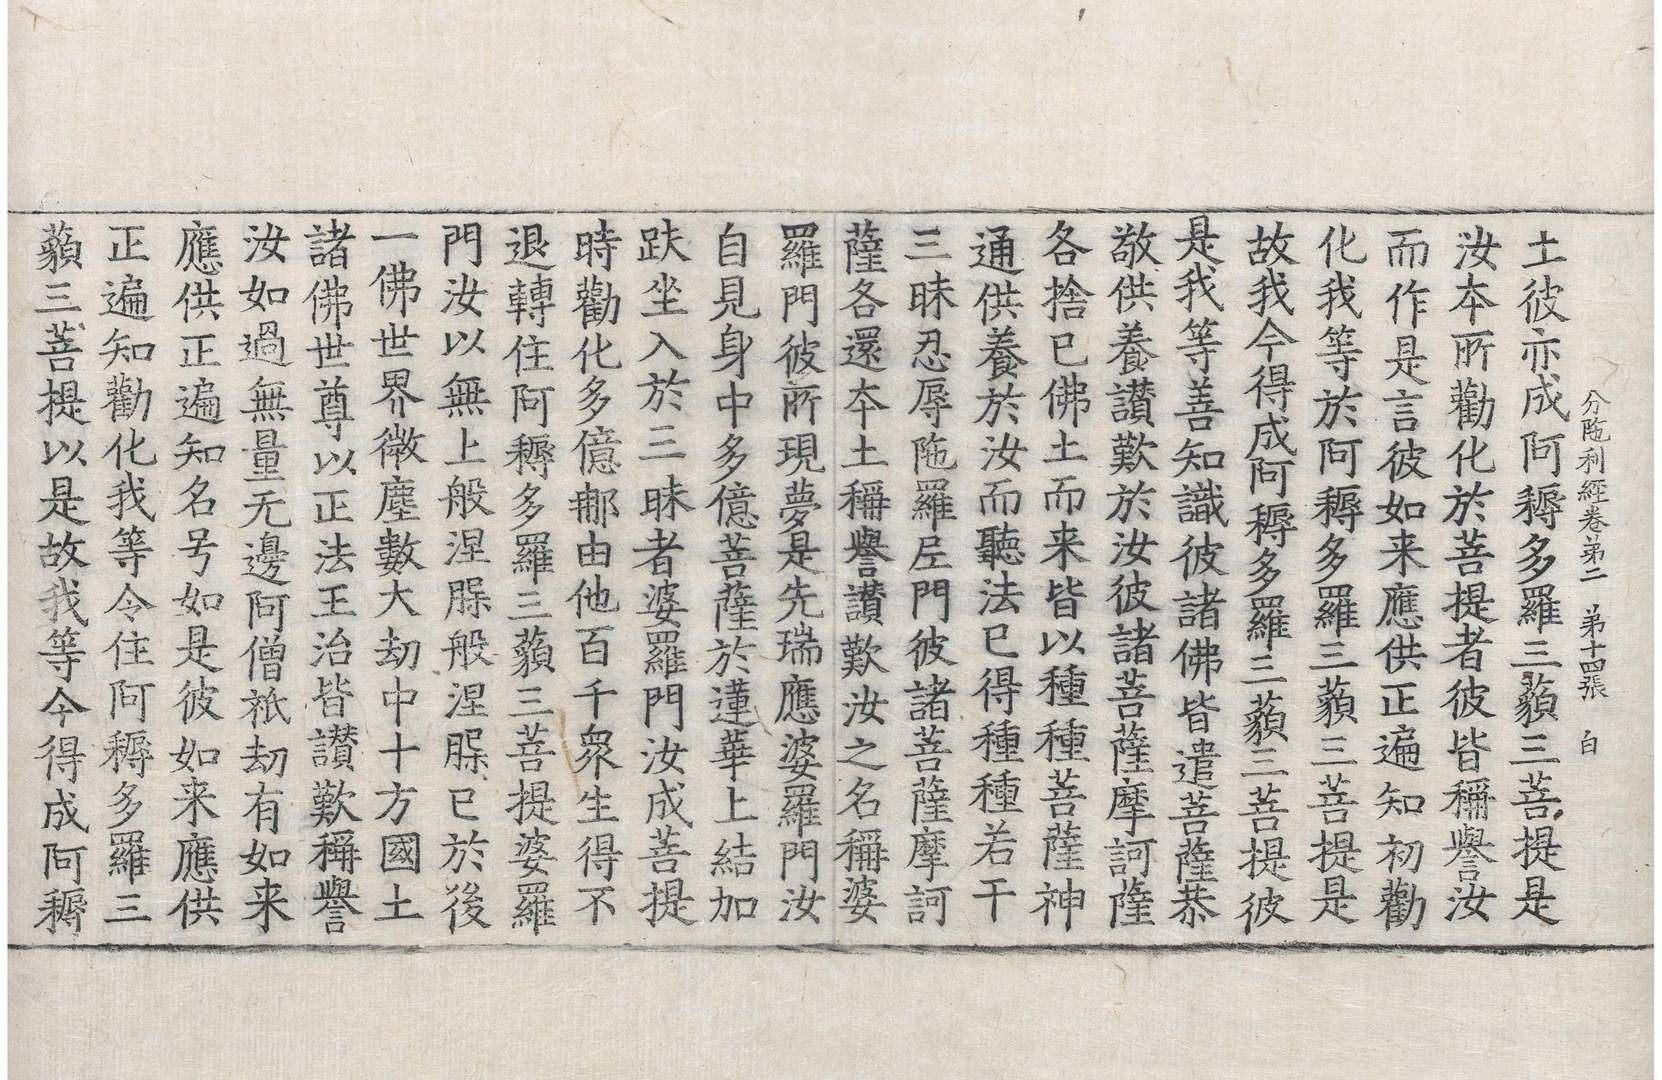 分陁利經卷第二　第十四張　白
土彼亦成阿耨多羅三藐三菩提是
汝夲所勸化於菩提者彼皆稱譽汝
而作是言彼如来應供正遍知初勸
化我等於阿耨多羅三藐三菩提是
故我今得成阿耨多羅三藐三菩提彼
是我等善知識彼諸佛皆遣菩薩恭
敬供養讃歎於汝彼諸菩薩摩訶薩
各捨已佛土而来皆以種種菩薩神
通供養於汝而聽法已得種種若干
三昧忍辱陁羅𡰱門彼諸菩薩摩訶
薩各還夲土稱譽讃歎汝之名稱婆
羅門彼所現夢是先瑞應婆羅門汝
自見身中多億菩薩於蓮華上結加
趺坐入於三昧者婆羅門汝成菩提
時勸化多億𨚗由他百千衆生得不
退轉住阿耨多羅三藐三菩提婆羅
門汝以無上般涅槃般涅槃已於後
一佛世界微塵數大劫中十方國土
諸佛世尊以正法王治皆讃歎稱譽
汝如過無量无邊阿僧祇劫有如来
應供正遍知名号如是彼如来應供
正遍知勸化我等令住阿耨多羅三
藐三菩提以是故我等今得成阿耨